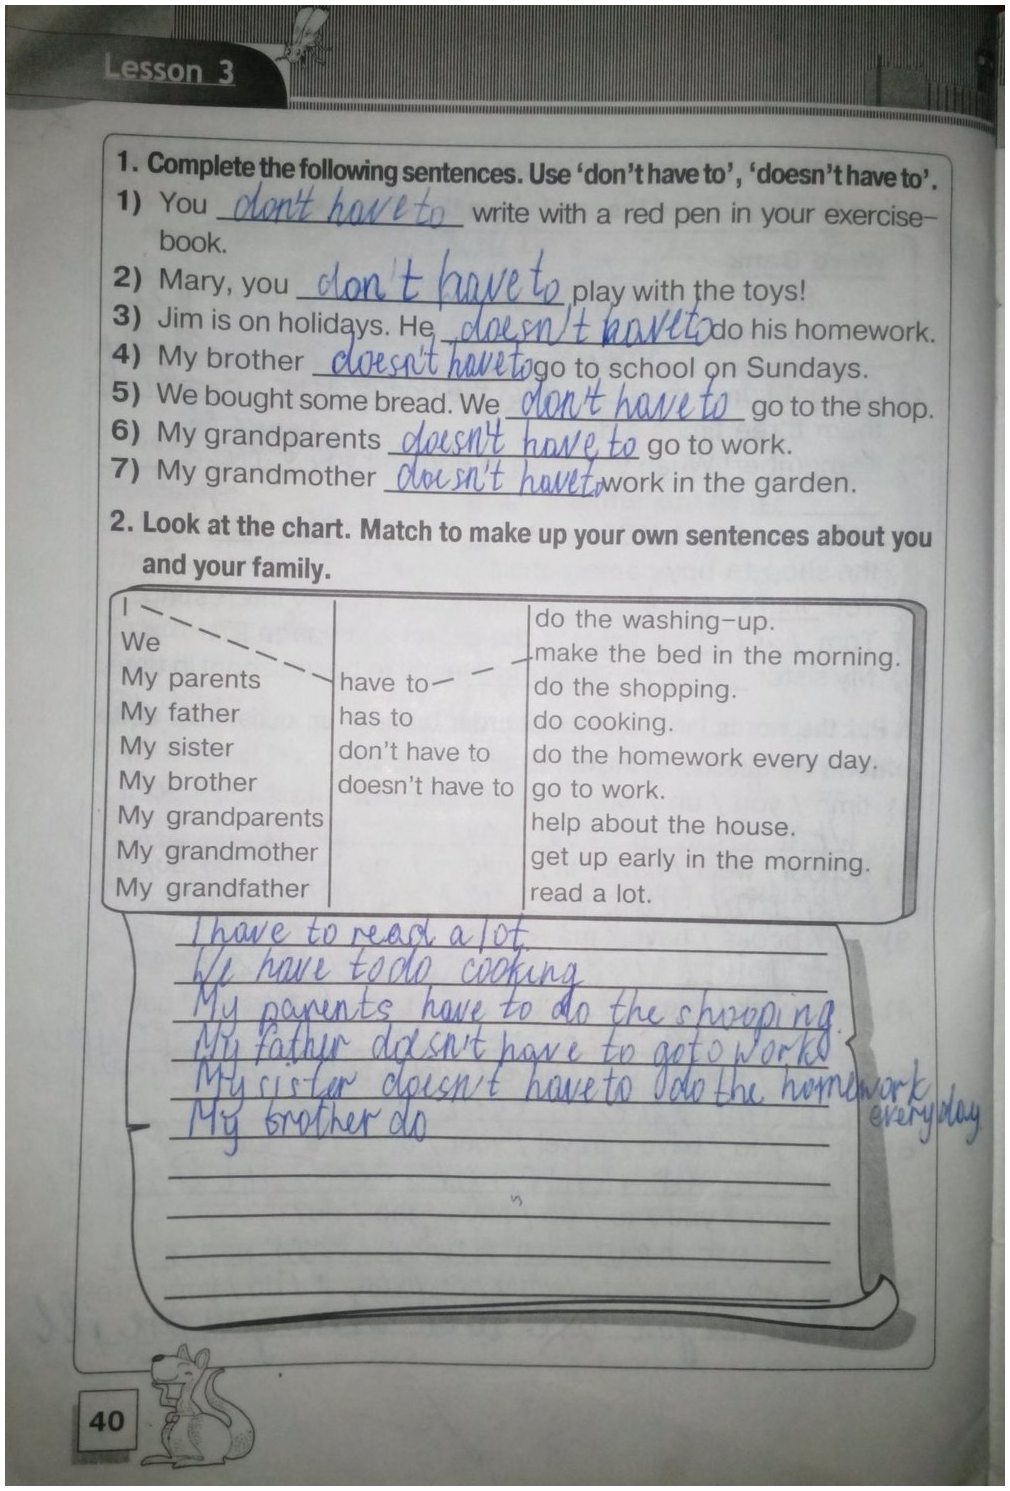 Lesson 3
1. Complete the following sentences. Use ‘don’t have to’, ‘doesn’t have to’.
1) You don't have to write with a red pen in your exercise-
book.
2) Mary, you don't have to play with the toys!
3) Jim is on holidays. He doesn't have to do his homework.
4) My brother doesn't have to go to school on Sundays.
5) We bought some bread. We don't have to go to the shop.
6) My grandparents doesn't have to go to work.
7) My grandmother doesn't have to work in the garden.
2. Look at the chart. Match to make up your own sentences about you
and your family.
I
We
My parents
My father
My sister
My brother
My grandparents
My grandmother
My grandfather
have to
has to
don’t have to
doesn’t have to
do the washing-up.
make the bed in the morning.
do the shopping.
do cooking.
do the homework every day.
go to work.
help about the house.
get up early in the morning.
read a lot.
I have to read a lot.
We have to do cooking
My parents have to do the shooping.
My father doesn't have to go to work
My sister doesn't have to do the homework
every day.
My brother do
40